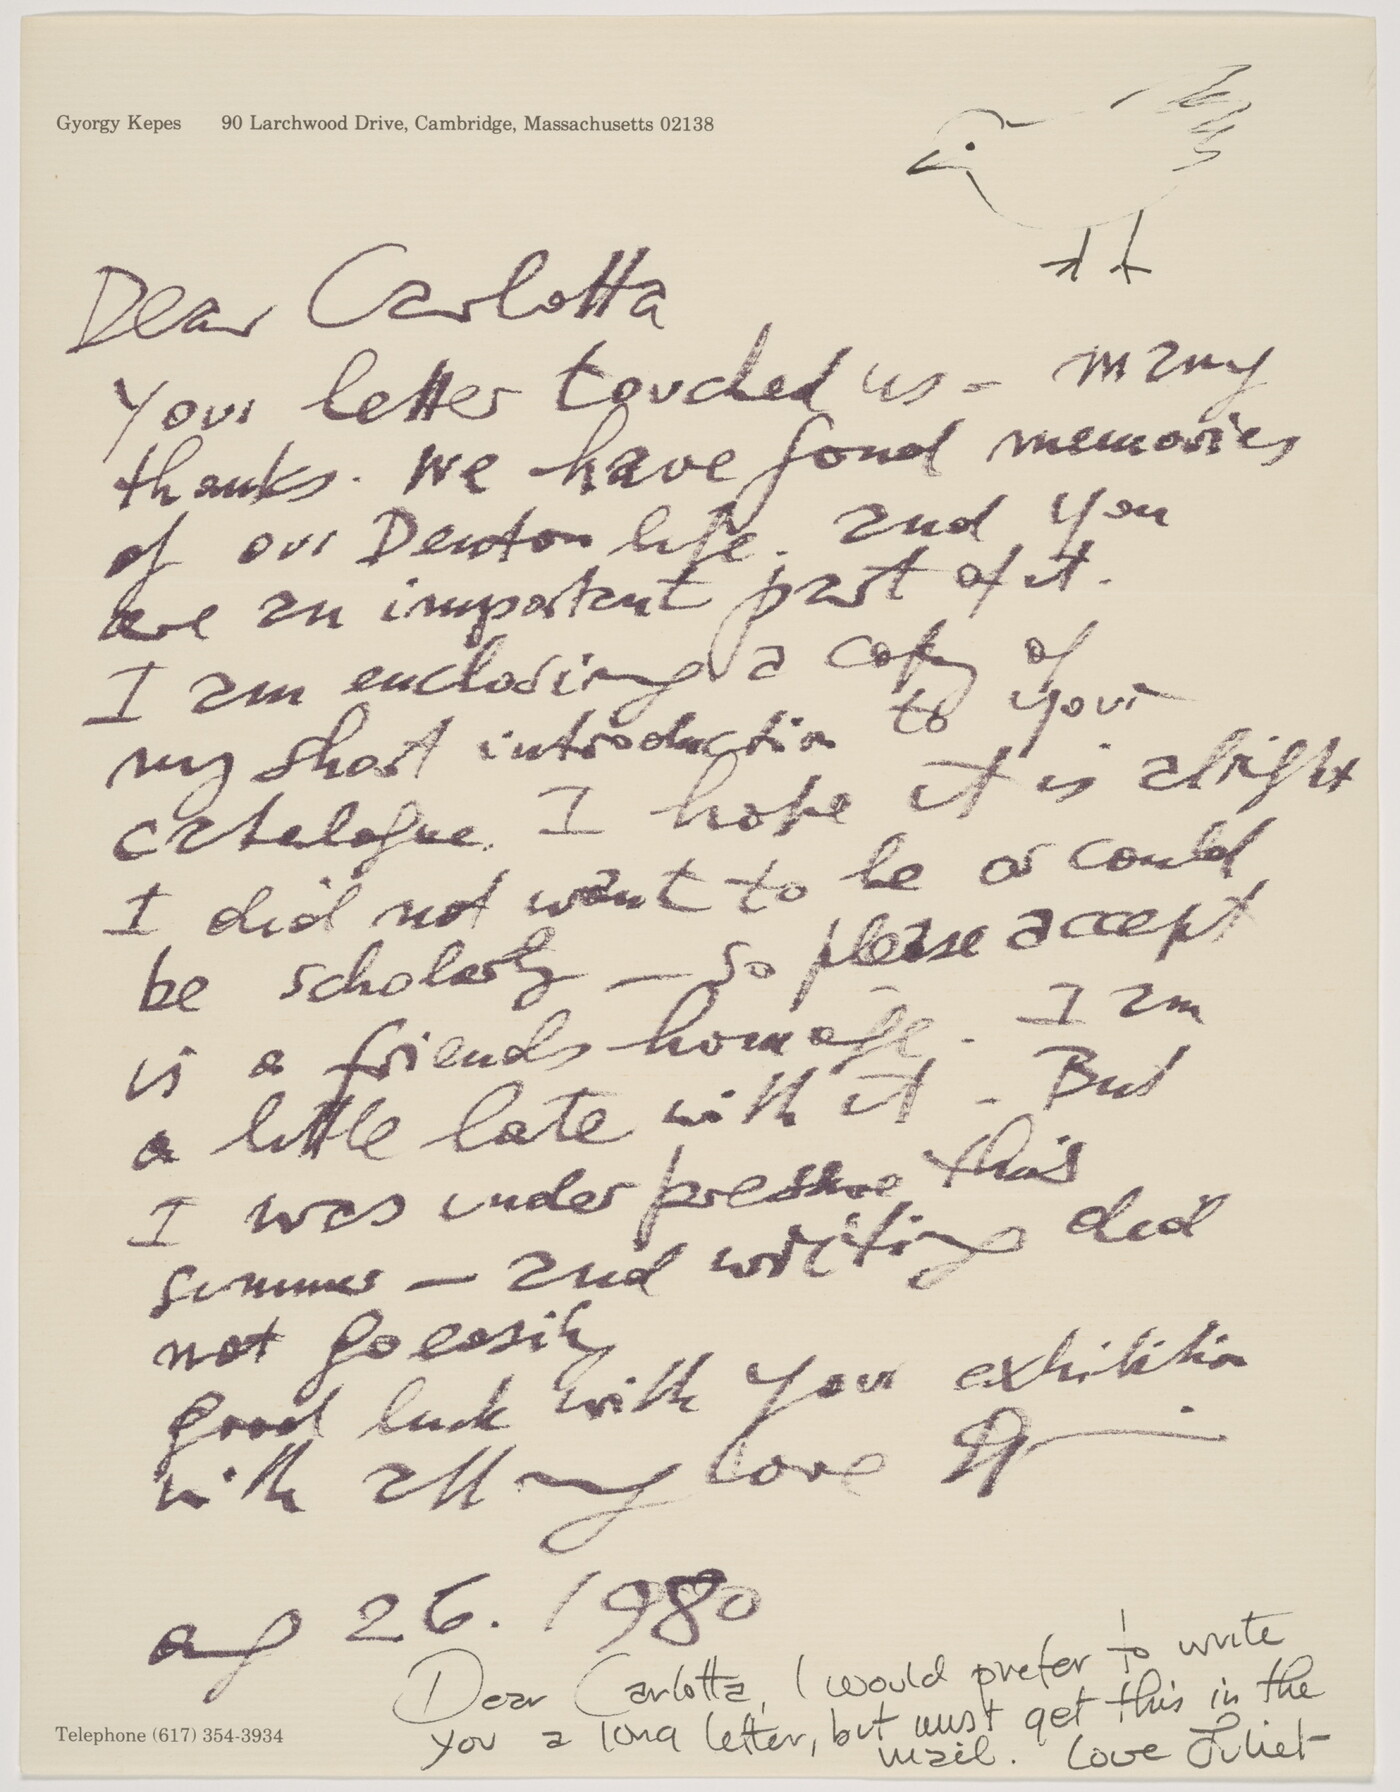 Gyorgy Kepes 90 Larchwood Drive, Cambridge, Massachusetts 02138
Dear Carlotta
Your letter touched us - many
thanks. We have fond memories
of our Denton life. and you
are an important part of it.
I am enclosing a copy of
my short introduction to your
catalogue. I hope it is alright
I did not want to be or could
be scholarly — so please accept
is a friends homage. I am
a little late with it - But
I was under pressure this
summer — and writing did
not go easily
good luck with your exhibition
with all my love
aug 26. 1980
Dear Carlotta, I would prefer to write
you a long letter, but must get this in the
mail. Love Juliet
Telephone (617) 354-3934